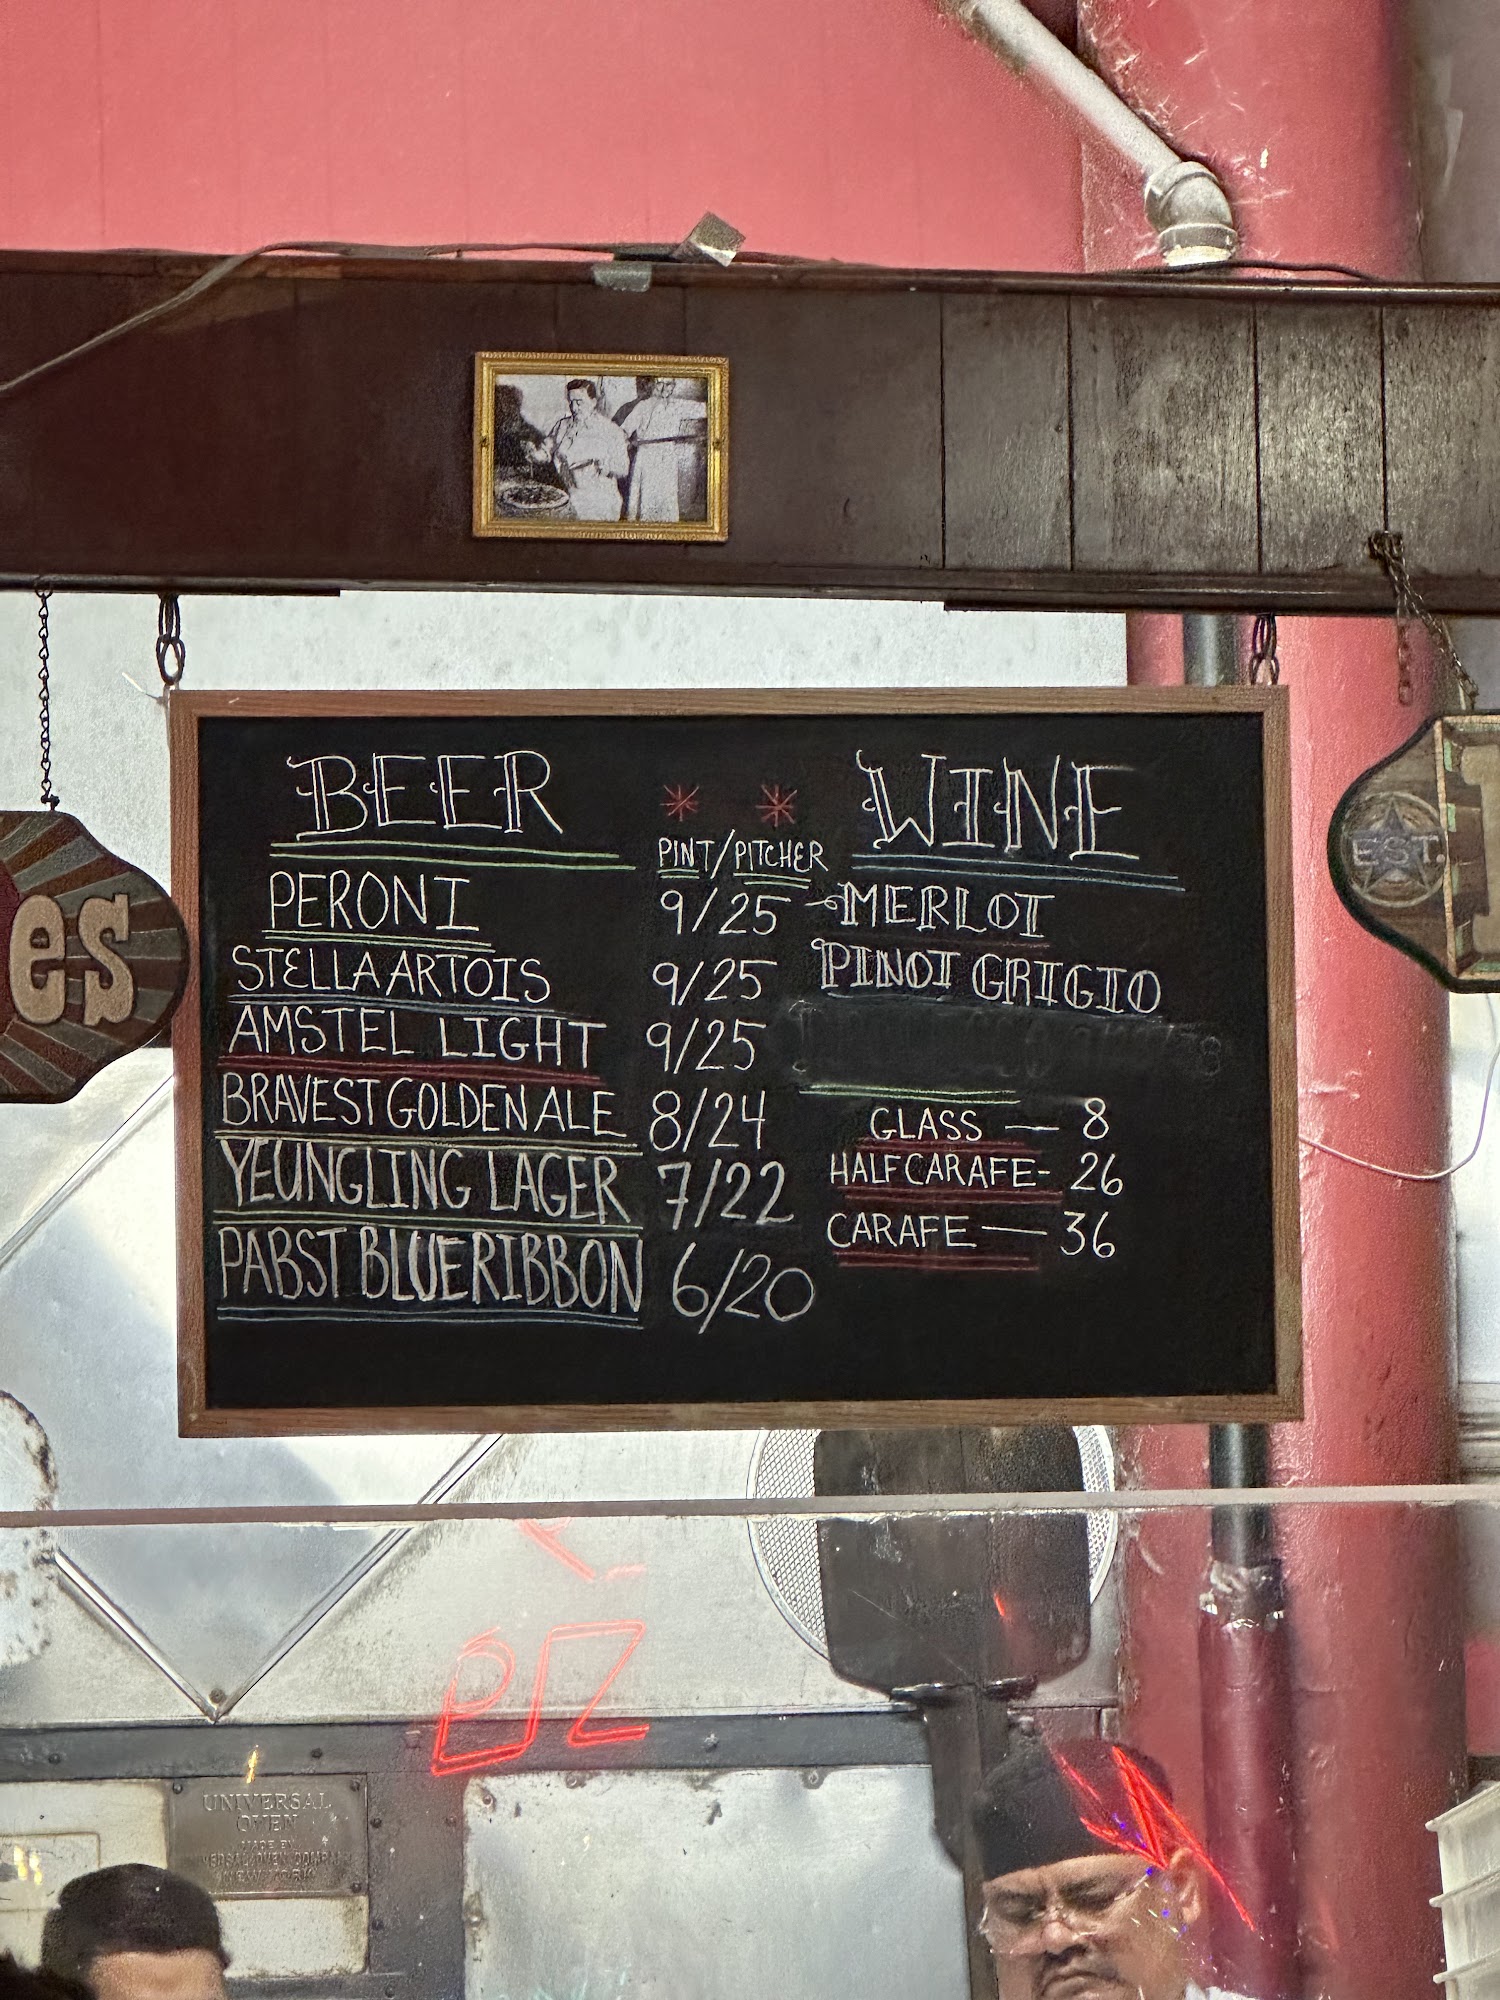 BEER
PINT/PITCHER
PERONI 9/25
STELLA ARTOIS 9/25
AMSTEL LIGHT 9/25
BRAVEST GOLDEN ALE 8/24
YEUNGLING LAGER 7/22
PABST BLUE RIBBON 6/20
WINE
MERLOT
PINOT GRIGIO
GLASS — 8
HALF CARAFE - 26
CARAFE — 36
es
EST.
UNIVERSAL
OVEN
MADE BY
UNIVERSAL OVEN COMPANY
NEW YORK